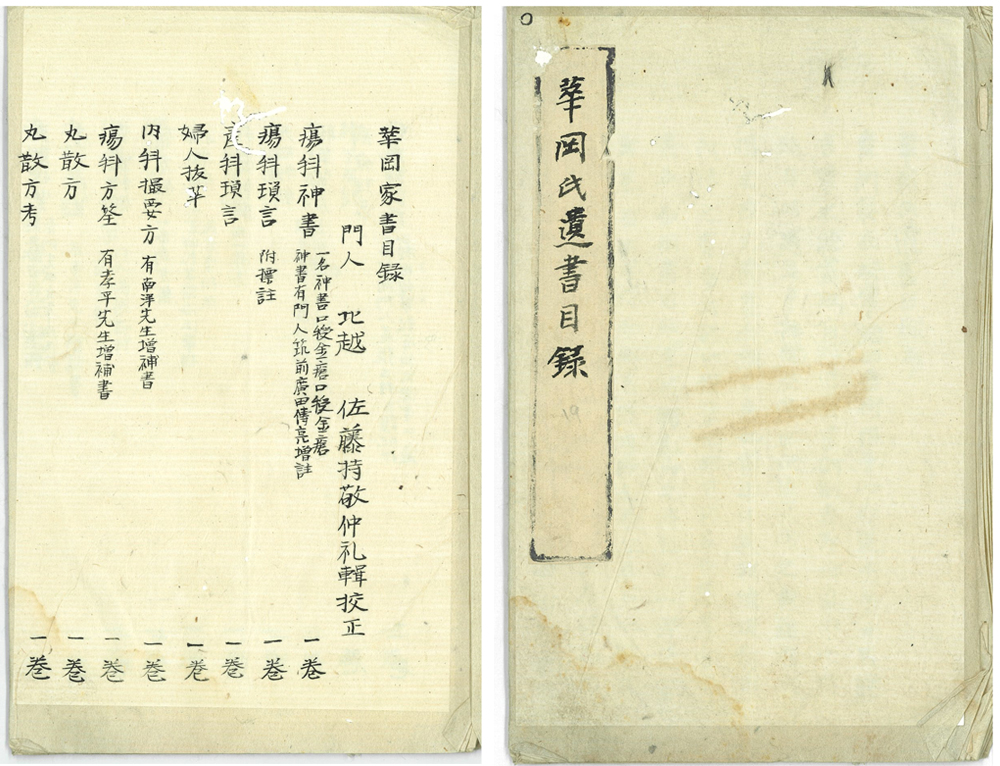 華岡氏遺書目録
華岡家書目録
門人 北越 佐藤持敬仲礼輯挍正
瘍科神書 一名神書口授金瘡口授金瘡 神書有門人筑前廣田傳亮増註 一巻
瘍科瑣言 附標註 一巻
産科瑣言 一巻
婦人抜萃 一巻
内科撮要方 有南洋先生増補書 一巻
瘍科方筌 有孝平先生増補書 一巻
丸散方 一巻
丸散方考 一巻